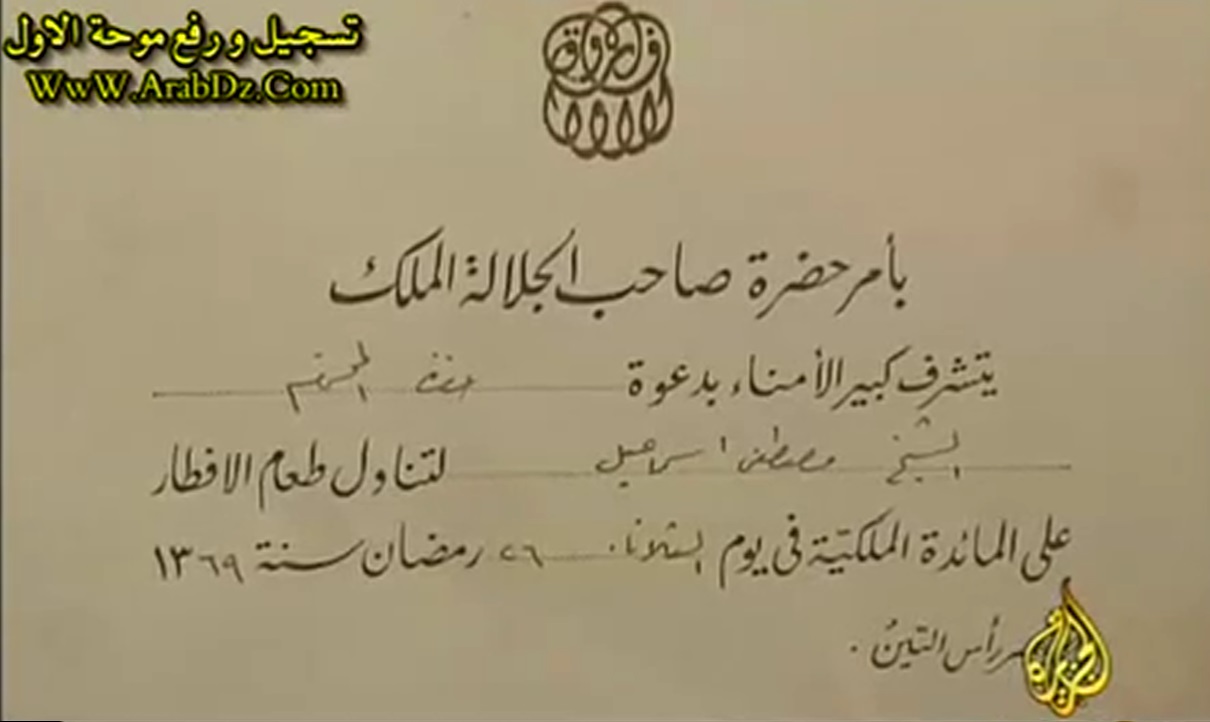 تسجيل و رفع موحة الاول
WwW.ArabDz.Com
فاروق
بأمر حضرة صاحب الجلالة الملك
يتشرف كبير الأمناء بدعوة حضرة المحترم
الشيخ مصطفى اسماعيل لتناول طعام الافطار
على المائدة الملكية فى يوم الثلاثاء ٢٦ رمضان سنة ١٣٦٩
رأس التين .
الجزيرة